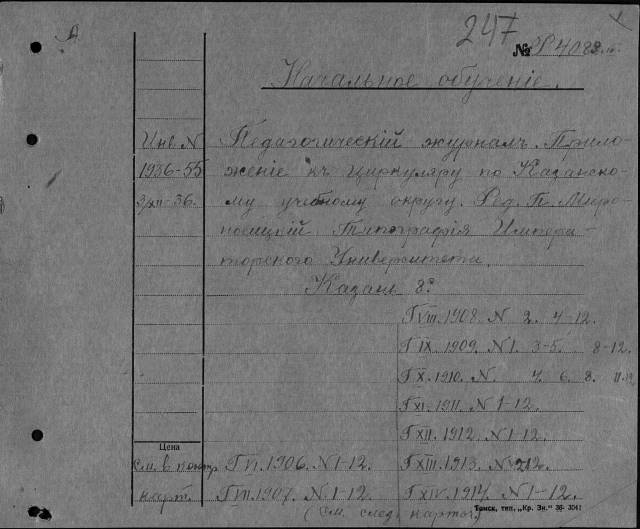 247
№ 4088
Начальное обученіе.
Инв N Педагогическій журналъ. Прило-
1936-55 женіе къ циркуляру по Казанско-
3/XII-36. му учебному округу. Ред. П. Миро-
носицкій. Типографія Импера-
торского Университета.
Казань 8°
Г VIII. 1908. N 2. 4-12.
Г IX. 1909. N 1. 3-5. 8-12.
Г X. 1910. N. 4. 6. 8.
Г XI. 1911. N 1-12.
Г XII. 1912. N 1-12.
Цена
см. в контр. Г VI. 1906. N 1-12. Г XIII. 1913. N 12.
карт. Г VII. 1907. N. 1-12. Г XIV. 1914. N 1-12.
(См. след. карточ.) Томск, тип. „Кр. Зн." 36-